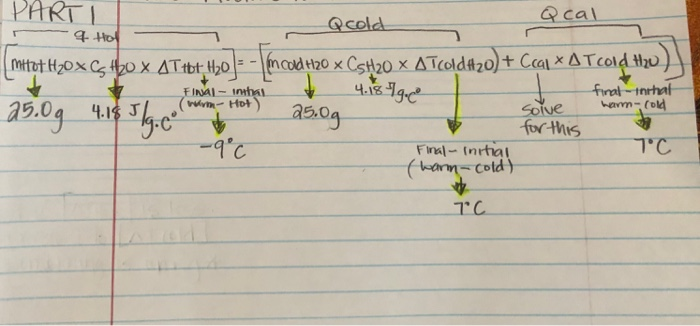 PART 1
q Hot
Qcold
Qcal
[mHot H2O x Cs H2O x ΔT Hot H2O] = - [(mcold H2O x CsH2O x ΔT(cold H2O) + Ccal x ΔTcold H2O)]
25.0g
4.18 J/g·c°
Final - initial
(warm - Hot)
-9°C
25.0g
4.18 J/g·c°
Final - initial
(warm - cold)
7°C
solve
for this
final - initial
warm - cold
7°C